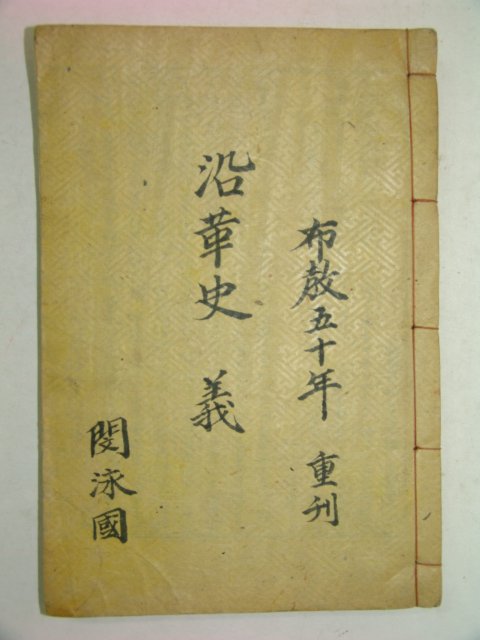 布教五十年 重刊
沿革史 義
閔泳國